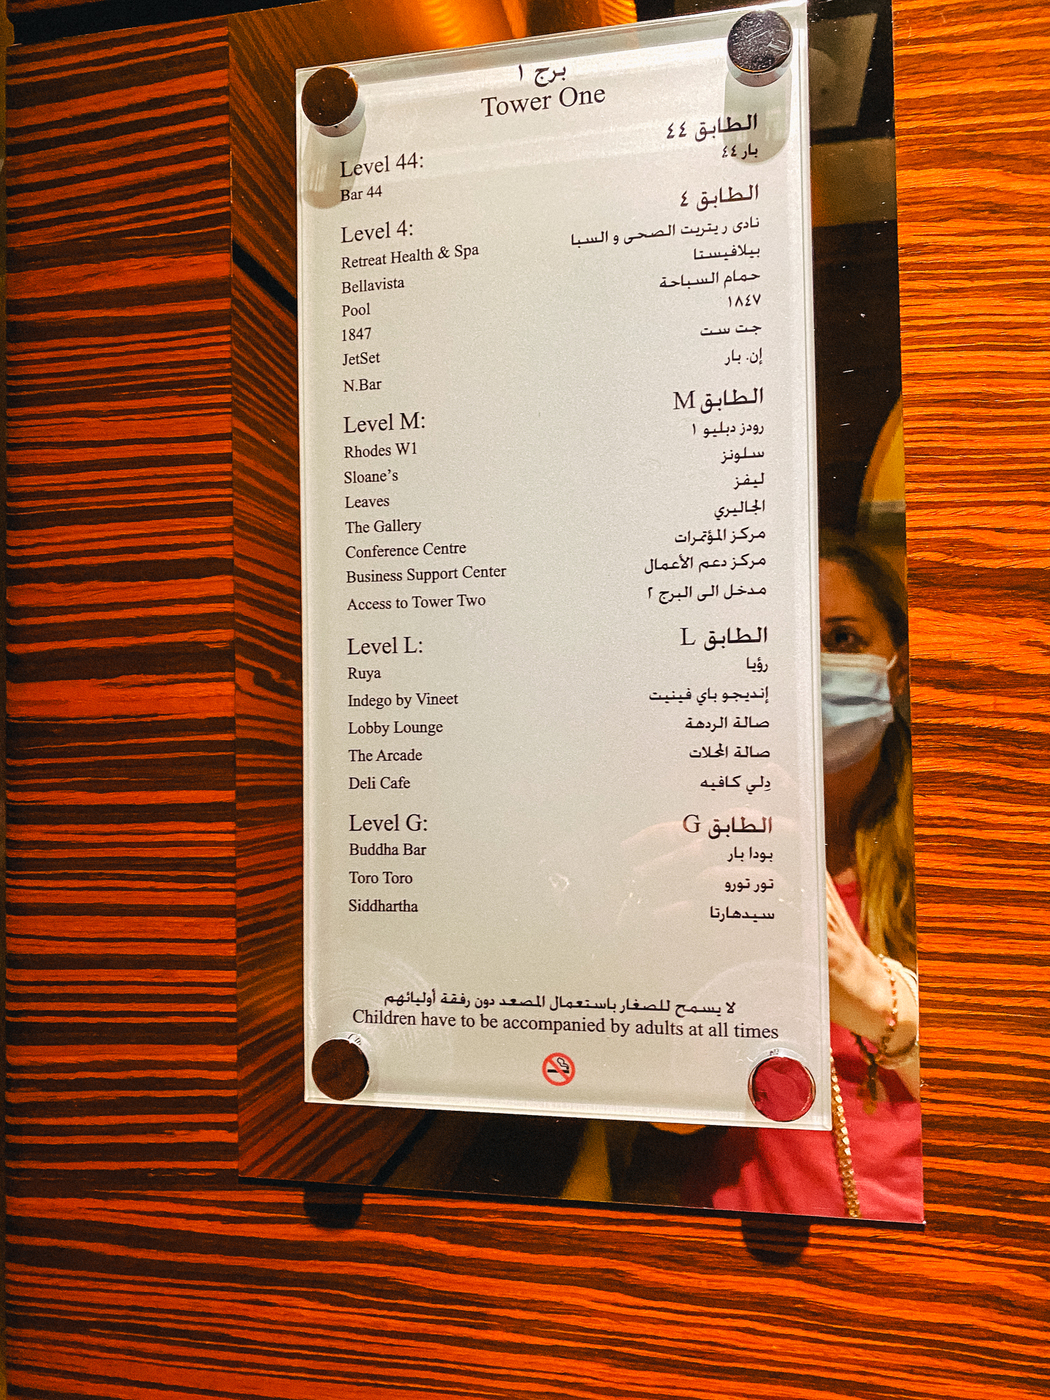 برج ١
Tower One
Level 44:
الطابق ٤٤
Bar 44
بار ٤٤
Level 4:
الطابق ٤
Retreat Health & Spa
نادى ريتريت الصحى و السبا
Bellavista
بيلافيستا
Pool
حمام السباحة
1847
١٨٤٧
JetSet
جت ست
N.Bar
إن. بار
Level M:
الطابق M
Rhodes W1
رودز دبليو ١
Sloane's
سلونز
Leaves
ليفز
The Gallery
الجاليري
Conference Centre
مركز المؤتمرات
Business Support Center
مركز دعم الأعمال
Access to Tower Two
مدخل الى البرج ٢
Level L:
الطابق L
Ruya
رؤيا
Indego by Vineet
إنديجو باي فينيت
Lobby Lounge
صالة الردهة
The Arcade
صالة المحلات
Deli Cafe
دِلي كافيه
Level G:
الطابق G
Buddha Bar
بودا بار
Toro Toro
تور تورو
Siddhartha
سيدهارتا
لا يسمح للصغار باستعمال المصعد دون رفقة أوليائهم
Children have to be accompanied by adults at all times